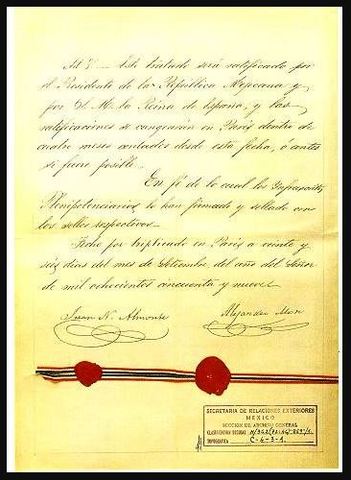 Este tratado será ratificado por
el Presidente de la República Mejicana y
por S. M. la Reina de España, y las
ratificaciones se cangearán en Paris dentro de
cuatro meses contados desde esta fecha, ó antes
si fuere posible.
En fé de lo cual los Infrascritos
Plenipotenciarios lo han firmado y sellado con
los sellos respectivos.
Fecho por triplicado en Paris á veinte y
seis dias del mes de Setiembre del año del Señor
de mil ochocientos cincuenta y nueve.
Juan N. Almonte
Alejandro Mon
SECRETARIA DE RELACIONES EXTERIORES
MEXICO
SECCION DEL ARCHIVO GENERAL
CLASIFICACION DECIMAL
TOPOGRAFICA C-4-3-1